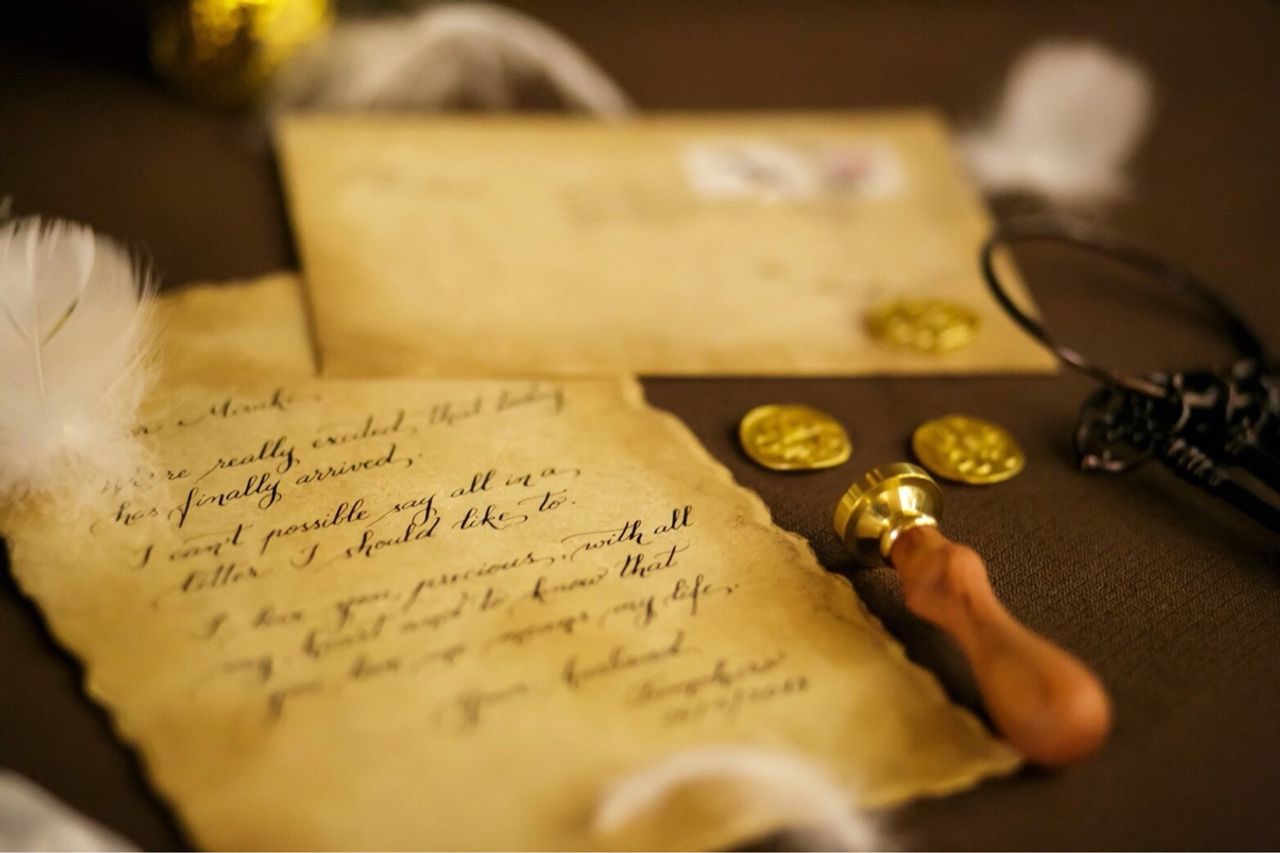 really excited that today
has finally arrived.
I can't possible say all in a
letter I should like to.
I love you, precious, with all
my heart and to know that
you love me means my life.
Your husband